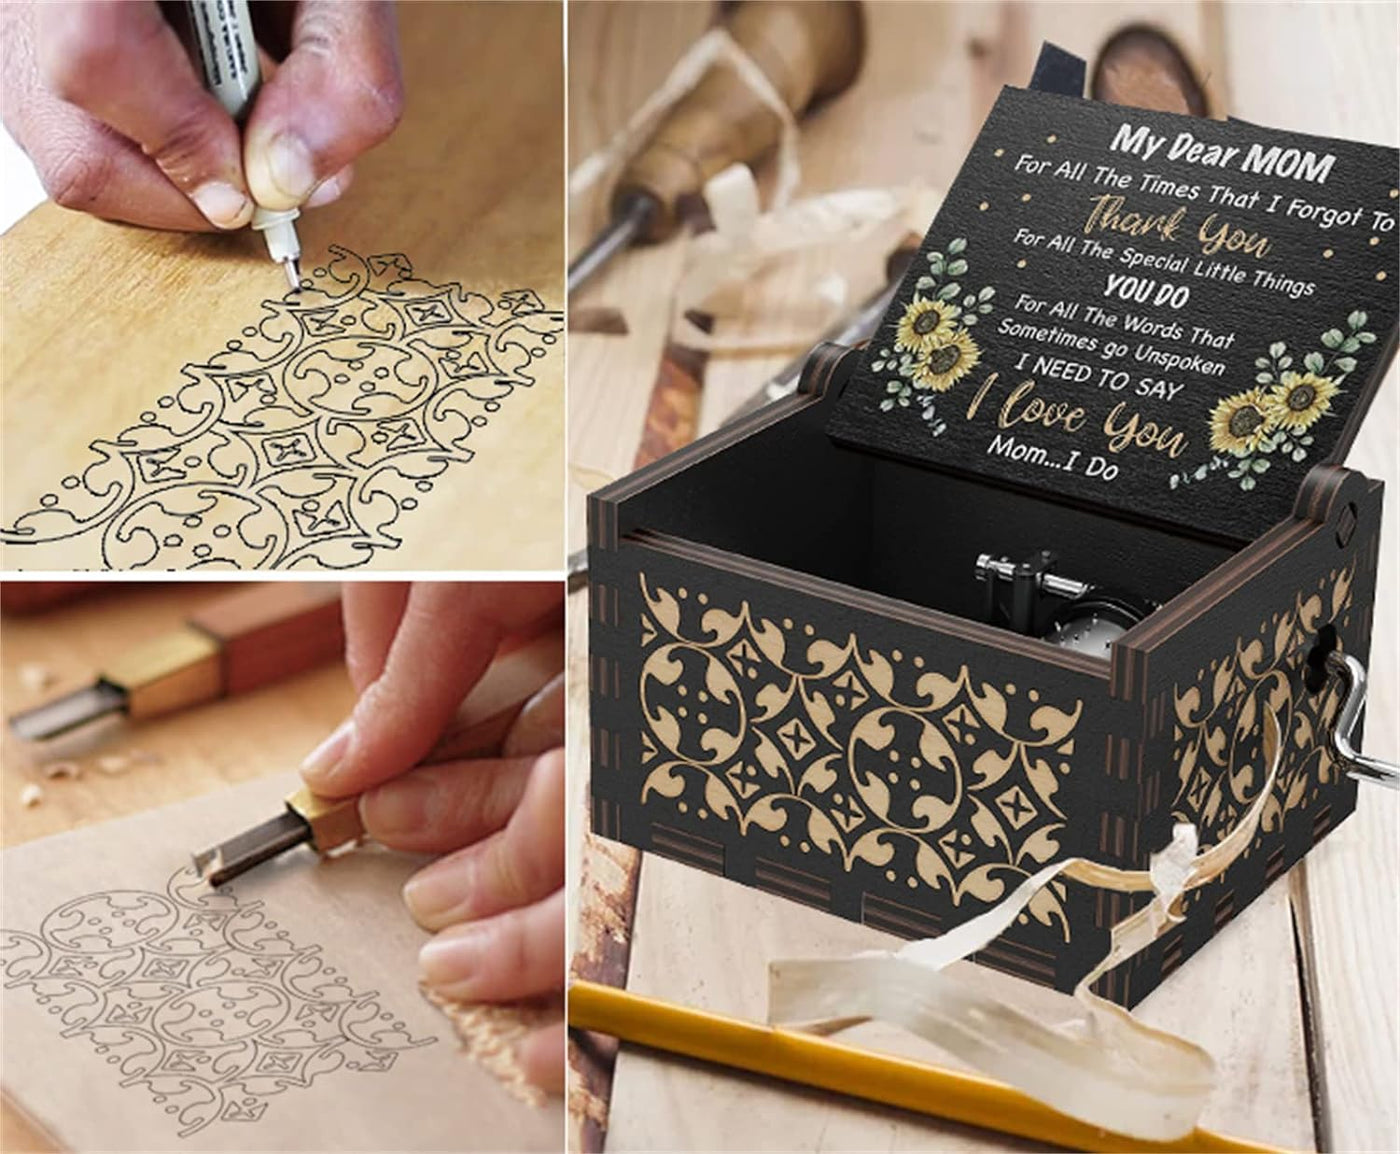 My Dear MOM
For All The Times That I Forgot To
Thank You
For All The Special Little Things
YOU DO
For All The Words That
Sometimes go Unspoken
I NEED TO SAY
I Love You
Mom...I Do